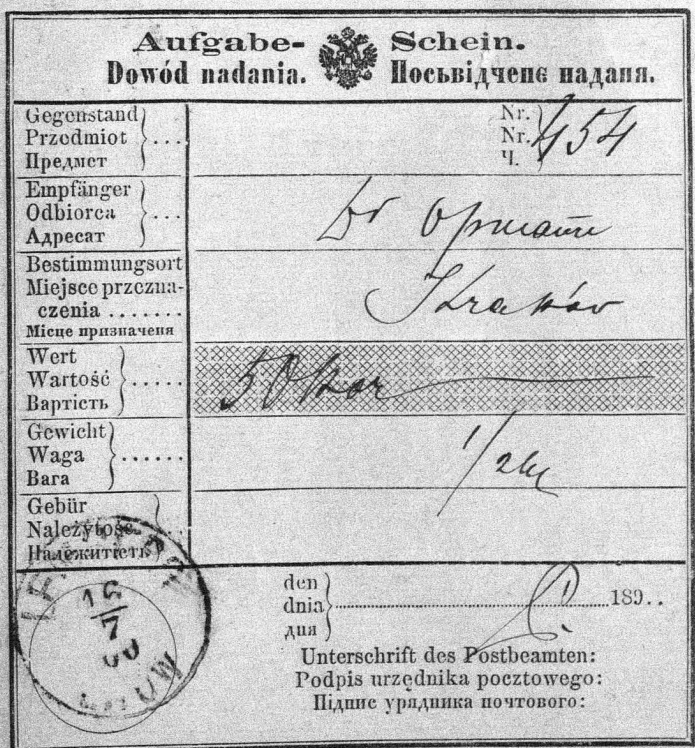 Aufgabe- Schein.
Dowód nadania. Посьвідченє наданя.
Gegenstand
Przedmiot ...
Предмет
Nr.
Nr. 454
Ч.
Empfänger
Odbiorca ...
Адресат
Dr
Bestimmungsort
Miejsce przezna-
czenia .......
Місце призначеня
Kraków
Wert
Wartość .....
Вартість
50 kor
Gewicht
Waga ......
Вага
1/2
Gebür
Należytość
Належитість
16
7
00
den
dnia 189..
дня
Unterschrift des Postbeamten:
Podpis urzędnika pocztowego:
Підпис урядника почтового: